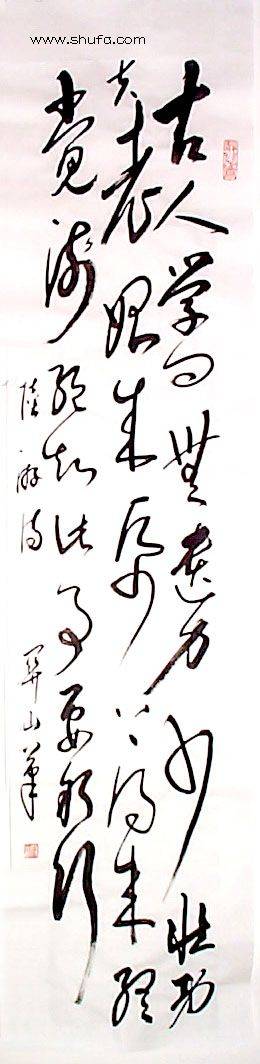 www.shufa.com
古人学问無遗力少壮功
夫老始成纸上得来终
觉浅绝知此事要躬行
陸游诗
山筆